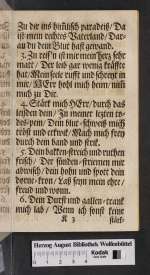 Zu der ins himlisch paradeiß/ Da
ist mein rechtes Vaterland/ Dar-
an du dein Blut hast gewand.
3. Zu reiß'n ist mir mein Hertz sehr
matt/ Der leib gar wenig kräffte
hat/ Mein seele rufft und schreyt in
mir/ HErr hohl mich heim/ nim
mich zu dir.
4. Stärck mich HErr/ durch das
leiden dein/ In meiner letzten to-
des-pein/ Dein blut-schweiß mich
tröst und erkwick/ Mach mich frey
durch dein band und strick.
5. Dein backenstreich und ruthen
frisch/ Der sünden-striemen mir
abwisch/ dein hohn und spott dein
dorne-kron/ Laß seyn mein ehre/
freud und wonn.
6. Dein Durst und gallen-tranck
mich lab/ Wenn ich sonst keine
K 3 stärk-
Herzog August Bibliothek Wolfenbüttel
Kodak